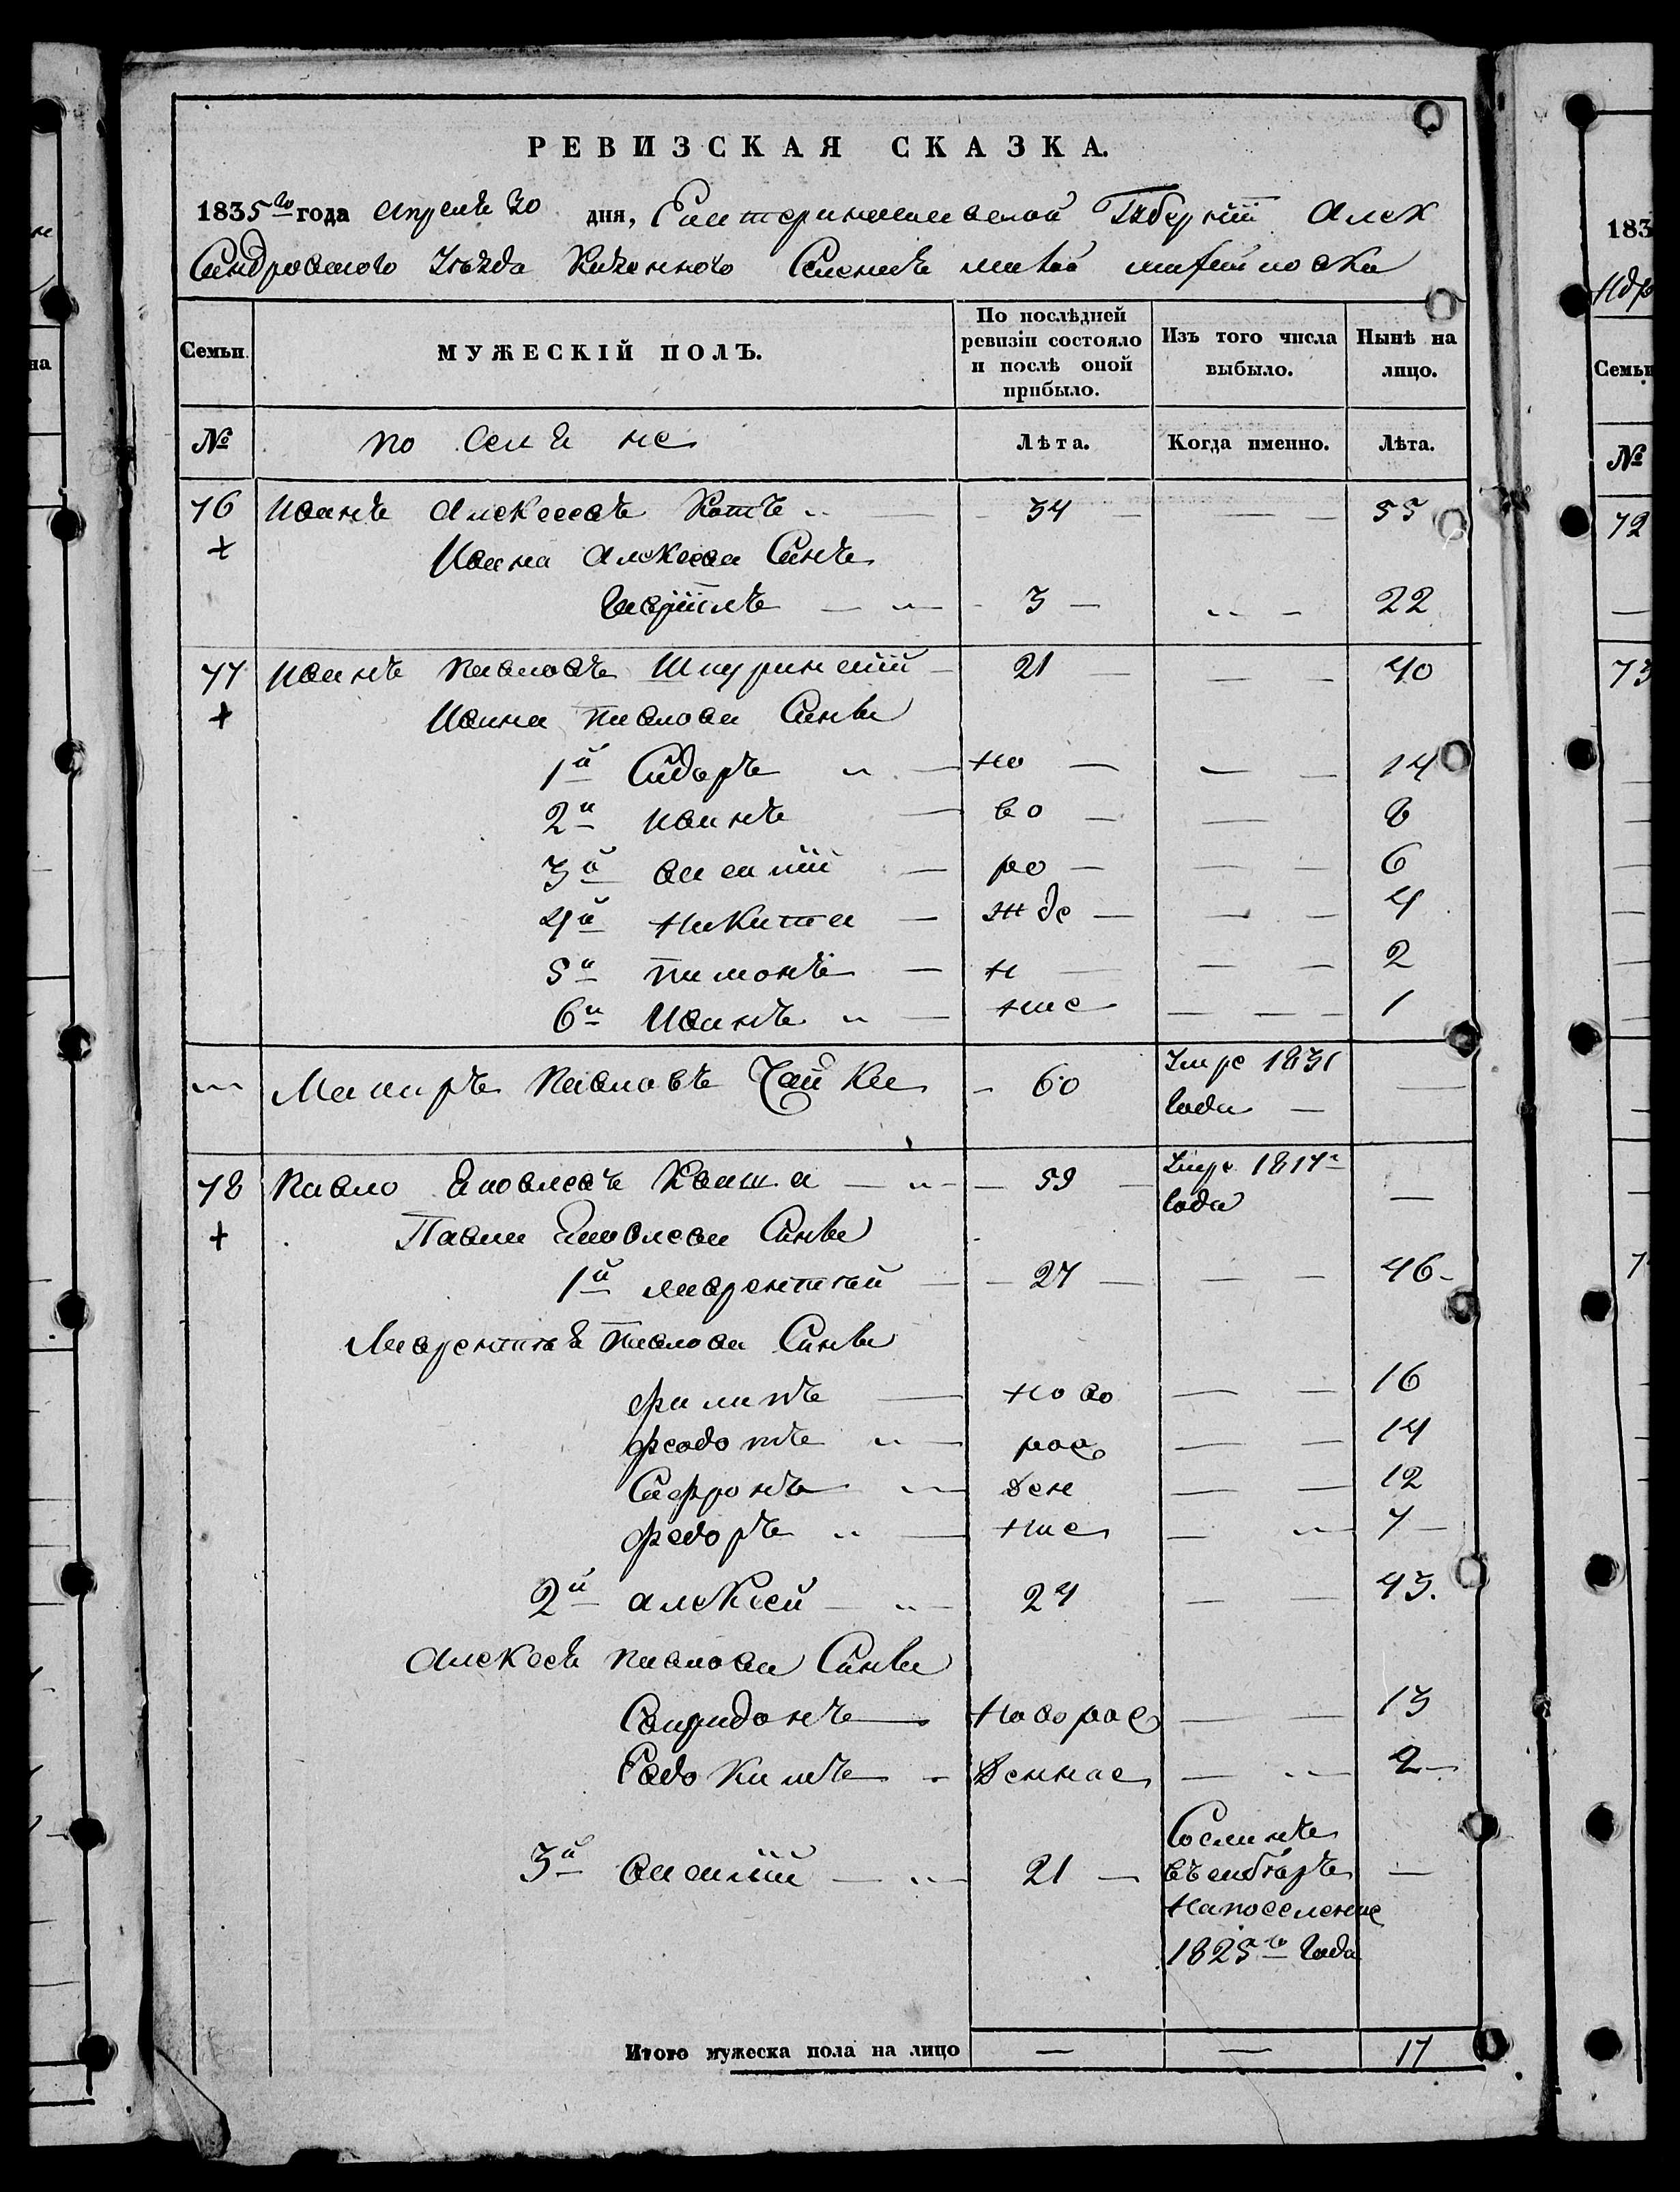 РЕВИЗСКАЯ СКАЗКА.
1835го года апреля 30 дня, Екатеринославской Губернiи Алек
Сандровского Уезда Казенного Селенiя
Семьи. МУЖЕСКІЙ ПОЛЪ. По послѣдней ревизіи состояло и послѣ оной прибыло. Изъ того числа выбыло. Нынѣ на лицо.
№ Лѣта. Когда именно. Лѣта.
76 Иванъ Алексеевъ Котъ 34 — 55
+ Ивана Алексеева Синъ
Гаврiилъ — 3 — — 22
77 Иванъ Павловъ 21 — — 40
+ Ивана Павлова Синви
1й Сидоръ — но — — 14
2й Иванъ — во — — 8
3й василiй — ро — — 6
4й Никита — жде — — 4
5й пимонъ — н — — 2
6й Иванъ — ние — — 1
Макаръ Павловъ Чайка — 60 Умре 1831 —
года —
78 Павло Яковлевъ Кваша — 59 — Умре 1817г —
года
+ Павла Яковлева Синви
1й лаврентiй — 27 — — 46
Лаврентiя Павлова Синви
филипъ — ново — 16
феодотъ — рож — 14
Сафронъ — ден — 12
федоръ — ние — 7
2й алексей — 24 — 43.
Алексея павлова Синви
Спиридонъ — Новорож — 13
Евдокимъ — денное — 2
3й василiй — 21 — Сосланъ —
въ сибѣръ
на поселение
1825го года
Итого мужеска пола на лицо — — 17
183
Семьи
№
72
73